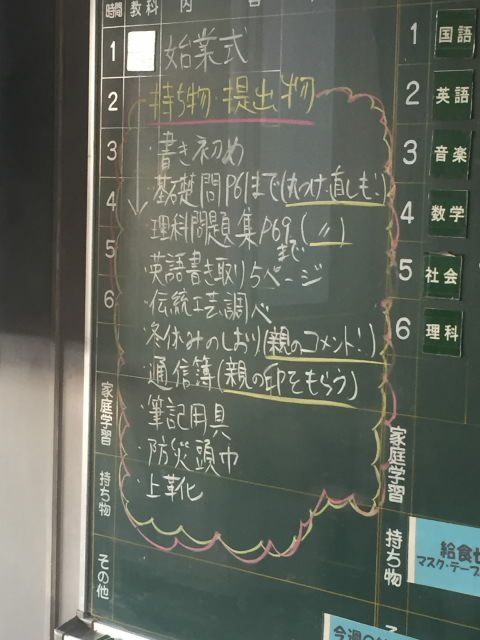 時間 教科 内 容
1 始業式
2 持ち物・提出物
3
4
5
6
・書き初め
・基礎問P61まで(丸つけ、直しも!)
・理科問題集P69まで(〃)
・英語書き取り5ページ
・伝統工芸調べ
・冬休みのしおり(親のコメント!)
・通信簿(親の印をもらう)
・筆記用具
・防災頭巾
・上革化
家庭学習
持ち物
その他
1 国語
2 英語
3 音楽
4 数学
5 社会
6 理科
家庭学習
持ち物
給食
マスク・テーブ
今週の